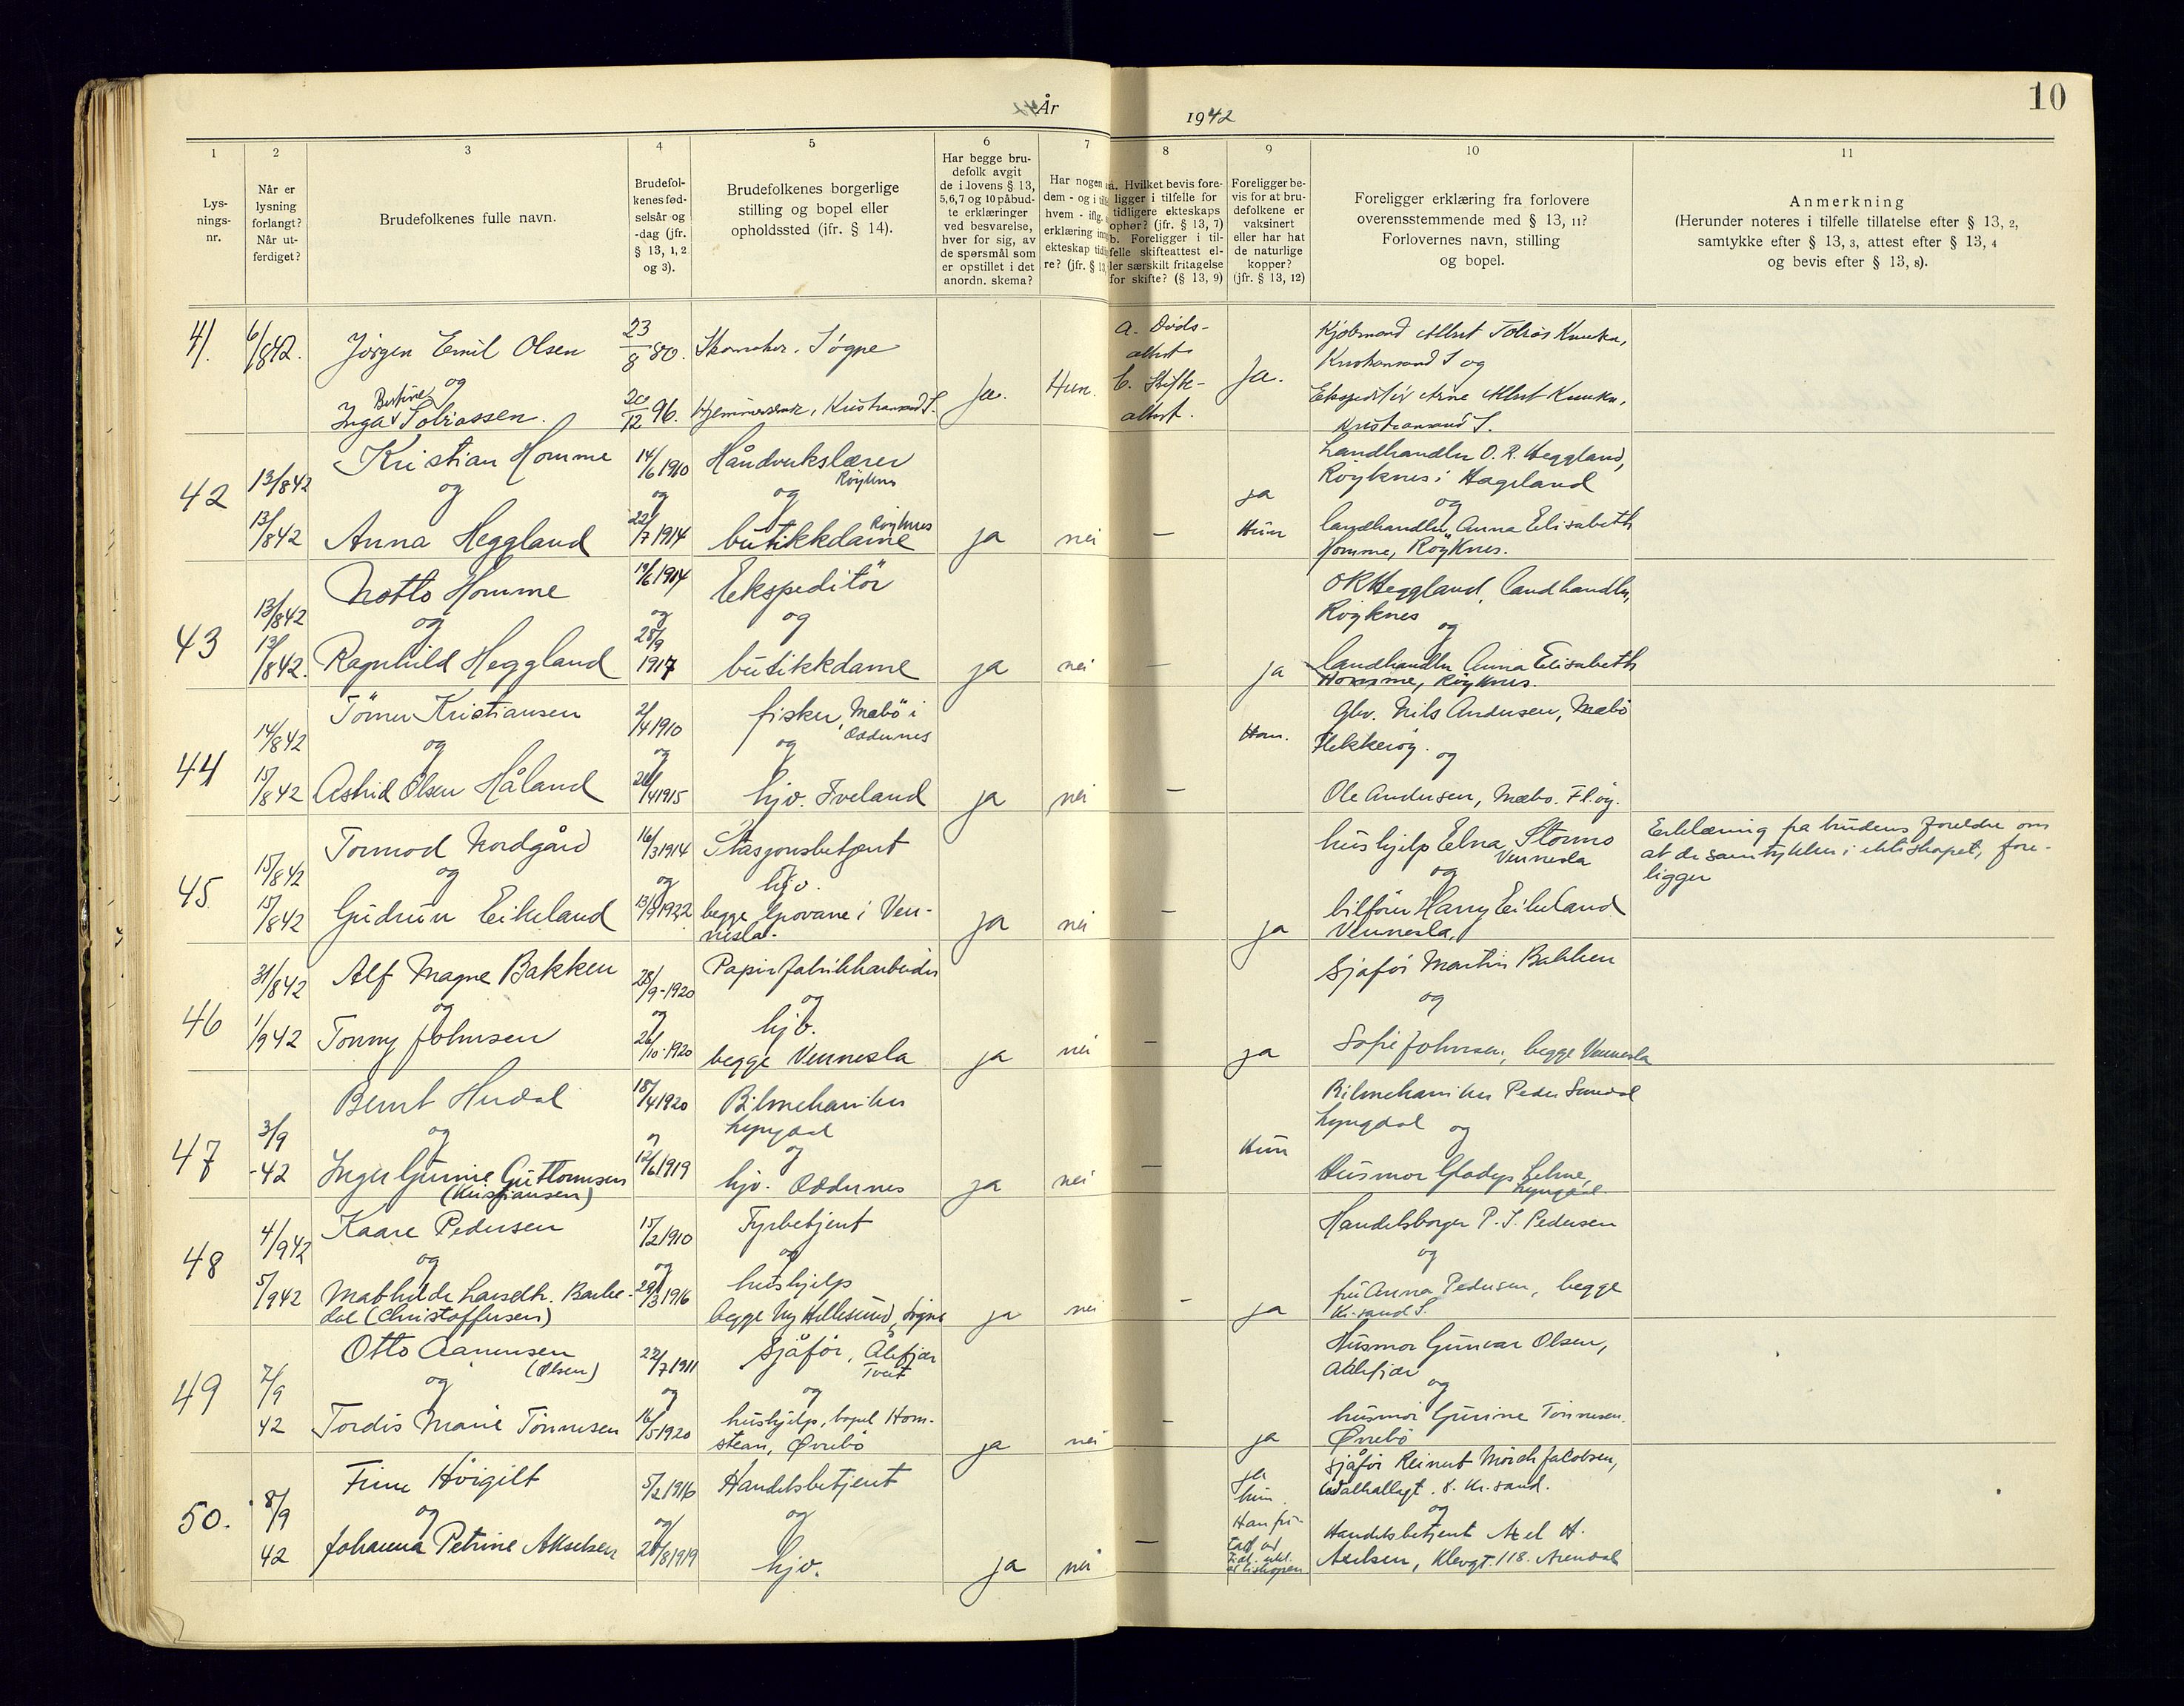 10
År 1942
1
2
3
4
5
6
7
8
9
10
11
Lys-
nings-
nr.
Når er
lysning
forlangt?
Når ut-
ferdiget?
Brudefolkenes fulle navn.
Brudefol-
kenes fød-
selsår og
-dag (jfr.
§ 13, 1, 2
og 3).
Brudefolkenes borgerlige
stilling og bopel eller
opholdssted (jfr. § 14).
Har begge bru-
defolk avgit
de i lovens § 13,
5,6,7 og 10 påbud-
te erklæringer
ved besvarelse,
hver for sig, av
de spørsmål som
er opstillet i det
anordn. skema?
Har nogen
dem - og i
hvem - iflg.
erklæring
ekteskap
re? (jfr. §
a. Hvilket bevis fore-
ligger i tilfelle for
tidligere ekteskaps
ophør? (jfr. § 13, 7)
b. Foreligger i til-
felle skifteattest el-
ler særskilt fritagelse
for skifte? (§ 13, 9)
Foreligger be-
vis for at bru-
defolkene er
vaksinert
eller har hat
de naturlige
kopper?
(jfr. § 13, 12)
Foreligger erklæring fra forlovere
overensstemmende med § 13, 11?
Forlovernes navn, stilling
og bopel.
Anmerkning
(Herunder noteres i tilfelle tillatelse efter § 13, 2,
samtykke efter § 13, 3, attest efter § 13, 4
og bevis efter § 13, 8).
41.
6/842.
Jörgen Emil Olsen
og
Inga Bertine Tobiassen.
23/8 80.
20/12 96.
Skomaker, Søgne
Kristiansand S.
Ja.
Hun.
a. Døds-
attest
b. Skifte-
attest.
Ja.
Kjøbmand Albert Tobias
Kristiansand S og
Ekspeditør Arne Albert
Kristiansand S.
42
13/842
13/842
Kristian Homme
og
Anna Heggland
14/6 1910
og
22/7 1914
Håndverkslærer
Röyknes
og
Röyknes
butikkdame
ja
nei
—
ja
Hun
Landhandler O. R. Heggland,
Röyknes i Hægeland
og
landhandler Anna Elisabeth
Homme, Röyknes.
43
13/842
13/842.
Notto Homme
og
Ragnhild Heggland
19/6 1914
og
28/9
1917
Ekspeditör
og
butikkdame
ja
nei
—
ja
O R Heggland, landhandler,
Röyknes
og
landhandler Anna Elisabeth
Homme, Röyknes.
44
14/842
15/842
Tömer Kristiansen
og
Astrid Olsen Håland
2/4 1910
og
26/4 1915
fisker, Mæbö i
Oddernes
og
hjv. Iveland
ja
nei
—
Han.
Gbr. Nils Andersen, Mæbö
Flekkeröy.
og
Ole Andersen, Mæbö. Fl.öy.
45
15/842
15/842
Tormod Nordgård
og
Gudrun Eikeland
16/3 1914
og
13/9 1922
Stasjonsbetjent
hjv.
begge Grovane i Ven-
nesla.
ja
nei
—
ja
hushjelp Elna Stormo
Vennesla
og
bilförer Harry Eikeland
Vennesla,
Erklæring fra brudens foreldre om
at de samtykker i ekteskapet, fore-
ligger
46
31/842
1/942
Alf Magne Bakken
og
Tonny Johnsen
28/9-1920
og
26/10-1920
Papirfabrikkarbeider
og
hjv.
begge Vennesla
ja
nei
—
ja
Sjåför Martin Bakken
og
Sofie Johnsen, begge Vennesla
47
3/9
-42
Bernt Hudal
og
Inger Gurine Guttormsen
(Kristiansen)
18/4 1920
og
12/6 1919
Bilmekaniker
Lyngdal
og
hjv. Oddernes
ja
nei
—
Hun
Bilmekaniker Peder
Lyngdal og
Husmor Gladys Lehne,
Lyngdal.
48
4/942
5/942
Kaare Pedersen
og
Mathilde
(Christoffersen)
15/2 1910
og
29/3 1916
Fyrbetjent
og
hushjelp
begge Ny Hellesund, Søgne
ja
nei
—
ja
Handelsborger P. J. Pedersen
og
fru Anna Pedersen, begge
Kr.sand S.
49
7/9
42
Otto Aanensen
(Olsen)
og
Tordis Marie Tönnesen
22/7 1911
og
16/5 1920
Sjåför, Ålefjær
Tveit
og
hushjelp, bopel Hom-
stean, Øvrebö
ja
nei
—
ja
Husmor Gunvor Olsen,
Aalefjær
og
husmor Gurine Tönnesen.
Øvrebö
50.
8/9
42
Finn Höigilt
og
Johanna Petrine Akselsen
5/2 1916
og
28/8 1919
Handelsbetjent
og
hjv.
ja
nei
—
ja
hun.
Han fri-
tatt
Sjåför Reinert Mörch Jacobsen,
Kr.sand.
og
Handelsbetjent Axel H.
Axelsen, Klevgt. 118. Arendal